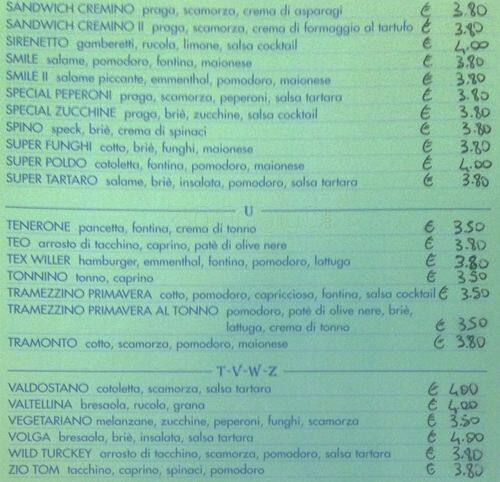 SANDWICH CREMINO praga, scamorza, crema di asparagi € 3.80
SANDWICH CREMINO II praga, scamorza, crema di formaggio al tartufo € 3.80
SIRENETTO gamberetti, rucola, limone, salsa cocktail € 4.00
SMILE salame, pomodoro, fontina, maionese € 3.80
SMILE II salame piccante, emmenthal, pomodoro, maionese € 3.80
SPECIAL PEPERONI praga, scamorza, peperoni, salsa tartara € 3.80
SPECIAL ZUCCHINE praga, briè, zucchine, salsa cocktail € 3.80
SPINO speck, briè, crema di spinaci € 3.80
SUPER FUNGHI cotto, briè, funghi, maionese € 3.80
SUPER POLDO cotoletta, fontina, pomodoro, maionese € 4.00
SUPER TARTARO salame, briè, insalata, pomodoro, salsa tartara € 3.80
U
TENERONE pancetta, fontina, crema di tonno € 3.50
TEO arrosto di tacchino, caprino, patè di olive nere € 3.80
TEX WILLER hamburger, emmenthal, fontina, pomodoro, lattuga € 3.80
TONNINO tonno, caprino € 3.50
TRAMEZZINO PRIMAVERA cotto, pomodoro, capricciosa, fontina, salsa cocktail € 3.50
TRAMEZZINO PRIMAVERA AL TONNO pomodoro, patè di olive nere, briè,
lattuga, crema di tonno € 3.50
TRAMONTO cotto, scamorza, pomodoro, maionese € 3.80
T-V-W-Z
VALDOSTANO cotoletta, scamorza, salsa tartara € 4.00
VALTELLINA bresaola, rucola, grana € 4.00
VEGETARIANO melanzane, zucchine, peperoni, funghi, scamorza € 3.50
VOLGA bresaola, briè, insalata, salsa tartara € 4.00
WILD TURCKEY arrosto di tacchino, scamorza, pomodoro, salsa tartara € 3.80
ZIO TOM tacchino, caprino, spinaci, pomodoro € 3.80